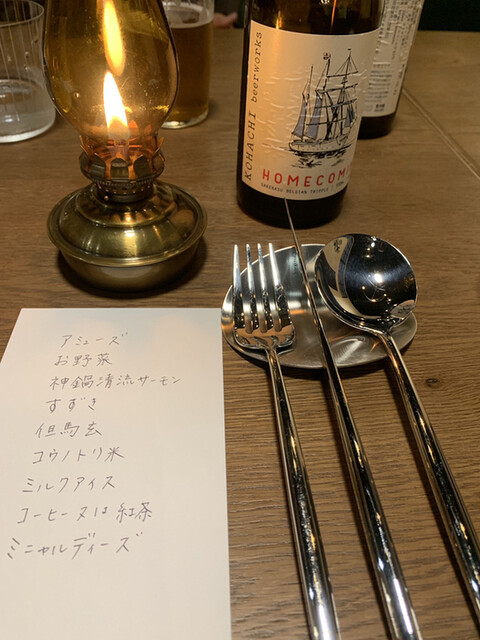 KOHACHI beerworks
HOMECOM
アミューズ
お野菜
神鍋清流サーモン
すずき
但馬玄
コウノトリ米
ミルクアイス
コーヒー又は紅茶
ミニャルディーズ